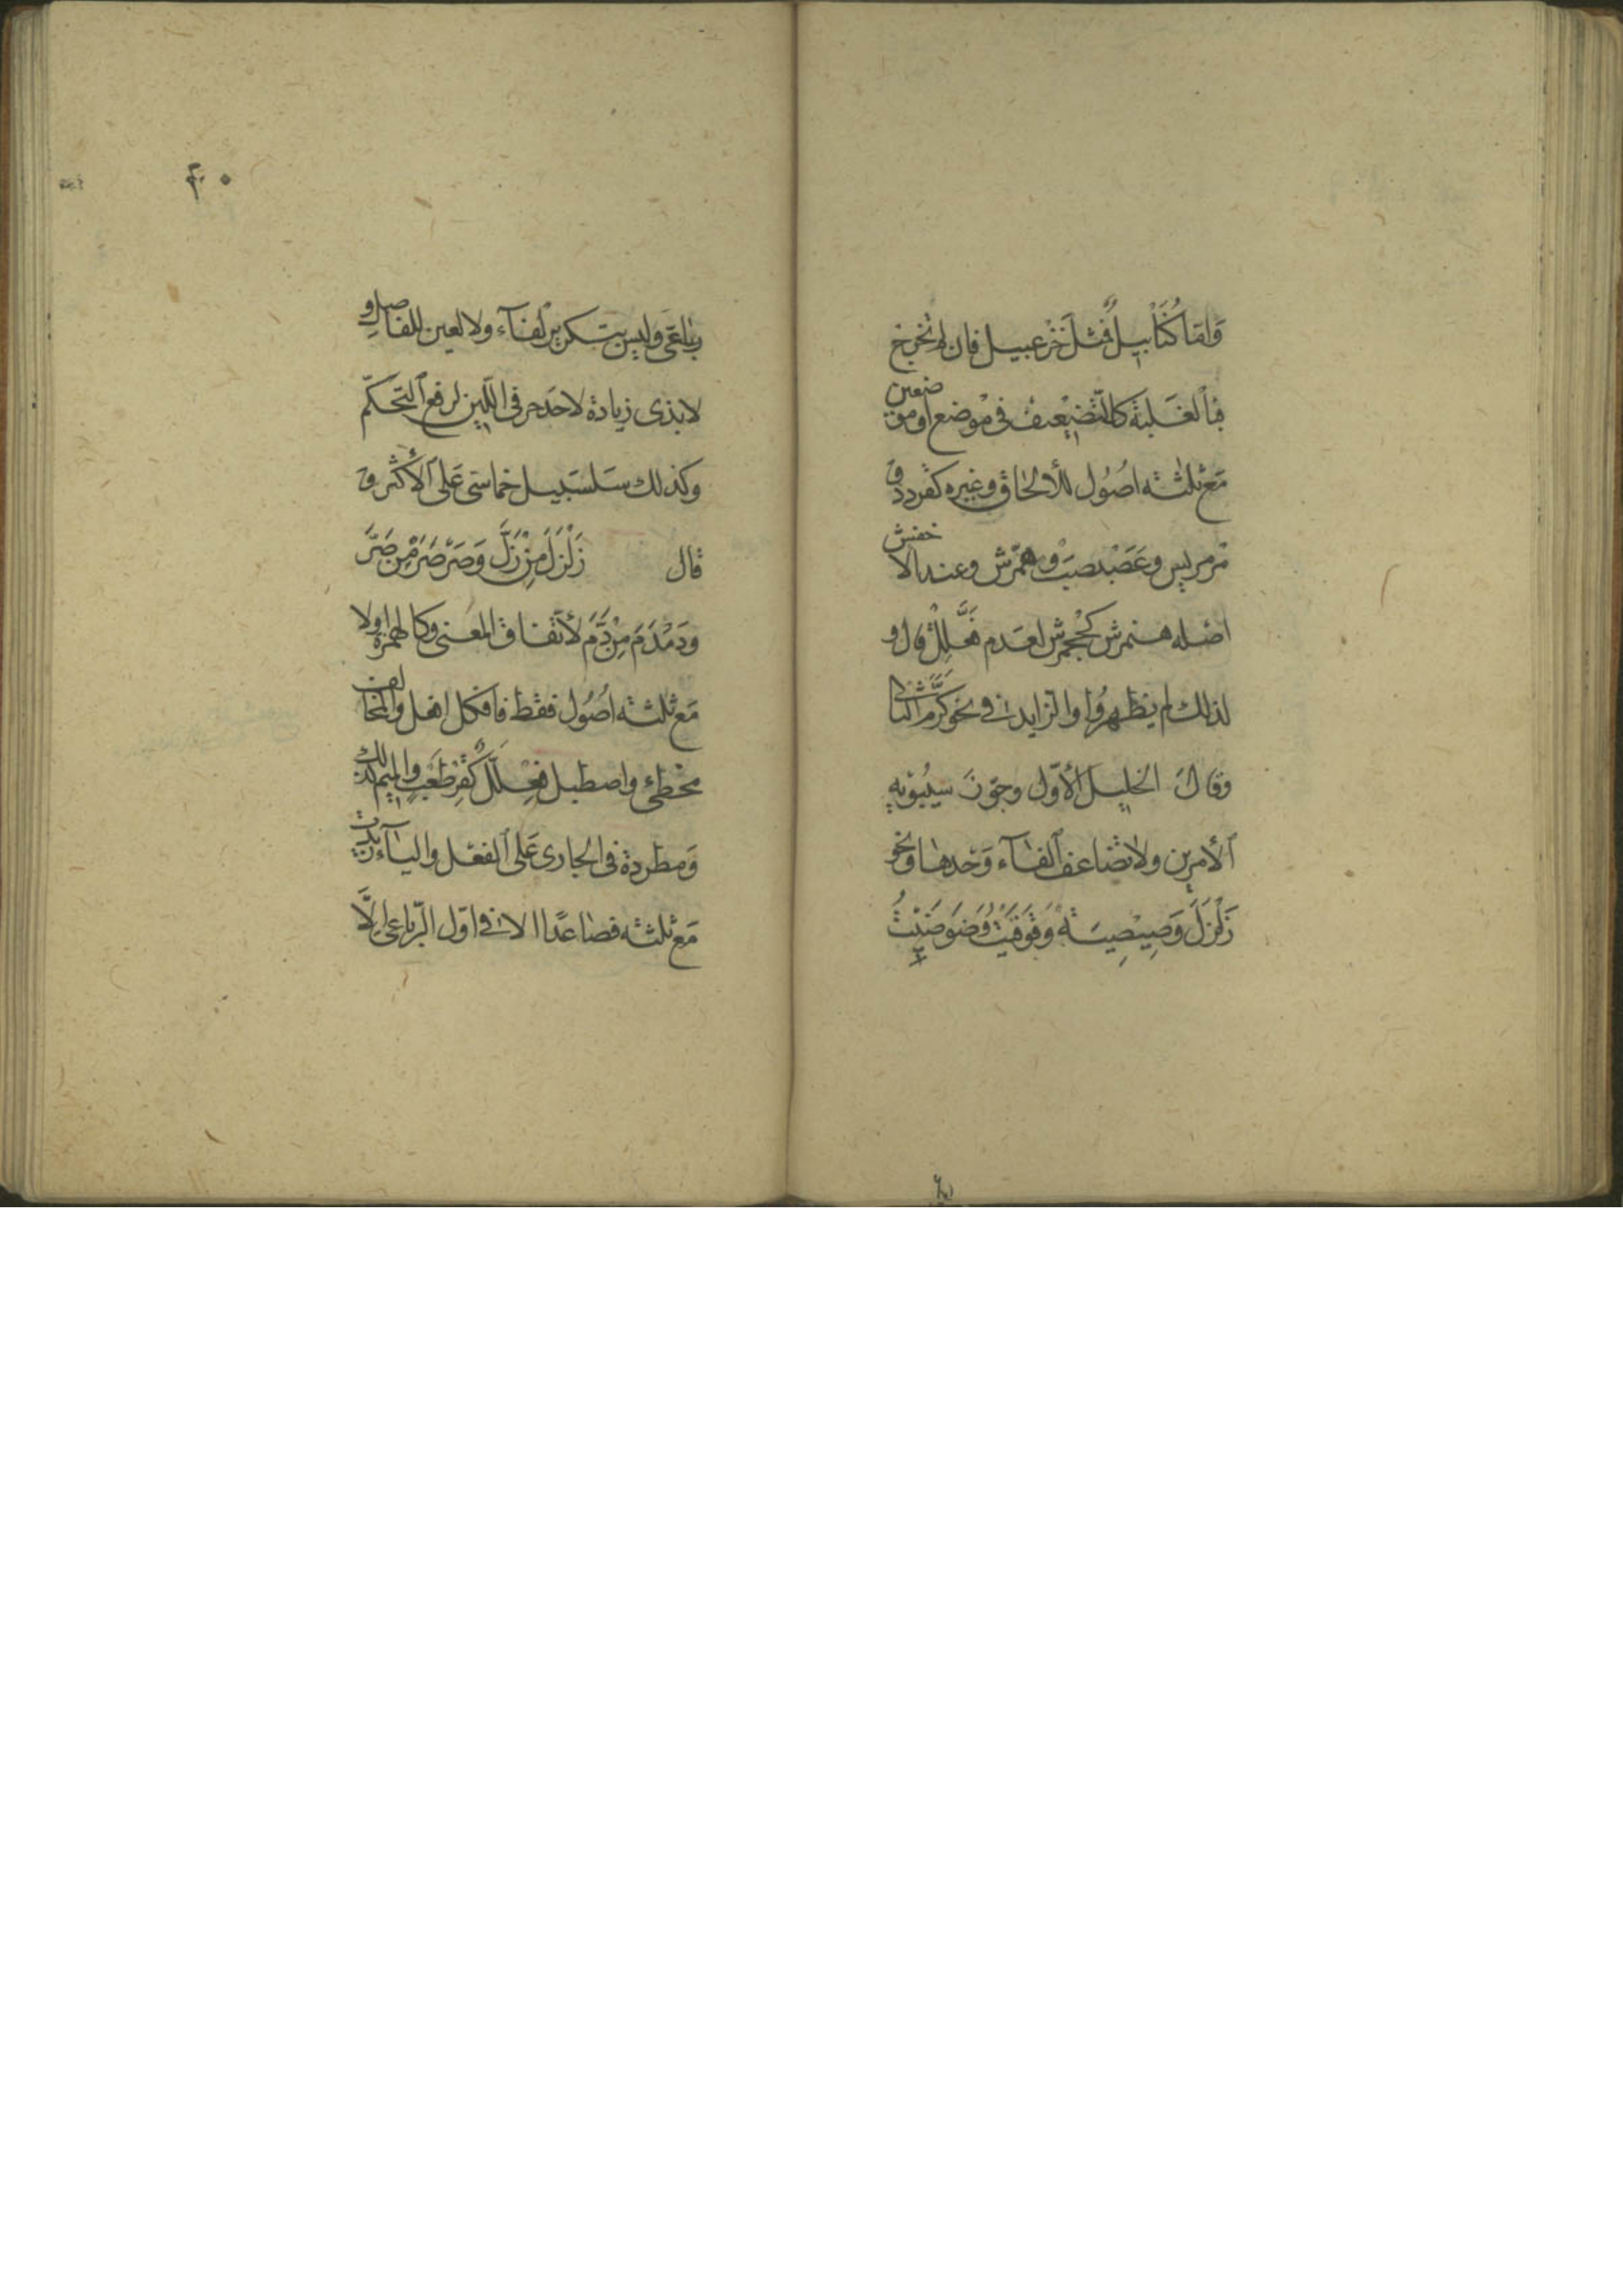 وَامّا كُنَابِيلٌ فمثل خُزعبيل فان لم تخرج
فبالغلبة كالتّضعيف فى موضع او موضعين
مَع ثلثة اصُول للألحاق وغيره كقردد و
مرمريس وعَصَبْصَبٍ وهمّرش وعند الاخفش
اصله هنمرش كجحمرش لعدم فَعَّلِلٌ قال و
لذلك لم يظهرُوا والزايد فى نحو كَرَّمَ الثانى
وقالَ الخليل الأوّل وجوّزَ سيبُوَيهِ
الأمرين ولا تضاعف الفآء وَحْدها ونحو
زَلْزَلَ وَصِيصِيَةٌ وَقَوْقَيْتُ وَضَوْضَيْتُ
۴۰
رباعَىّ وليس بتكرير لفآء ولا لعين للفاصل و
لا بذى زيادة لاحد حرفى اللّين لرفع التّحكّم
وكذلك سَلسَبيل خماسّى عَلَى الأكْثر و
قال زَلْزَلَ مِنْ زَلَّ وَصَرْصَرَ مِن صَرَّ
ودَمْدَمَ مِنْ دَمَّ لأتّفاق المعنى وكالهمزة اولا
مَع ثلثة اصُول فقط فافكل افعل والمخالف
مخطئ واصطبل فِعْلَلٌّ كَقِرْطَعْبٍ والميم كذلك
وَمطردة فى الجارى عَلى الفعْل واليآء زيدت
مَع ثلثة فصاعدًا الا فى اوّل الرّباعى إلّا